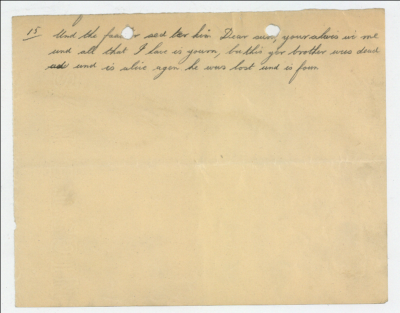 15 Und the feader sed ter him Dear sun, your alwes in me
und all that I have is yourn, but this yor brother wes dead
und is alive agen he was lost und is foun